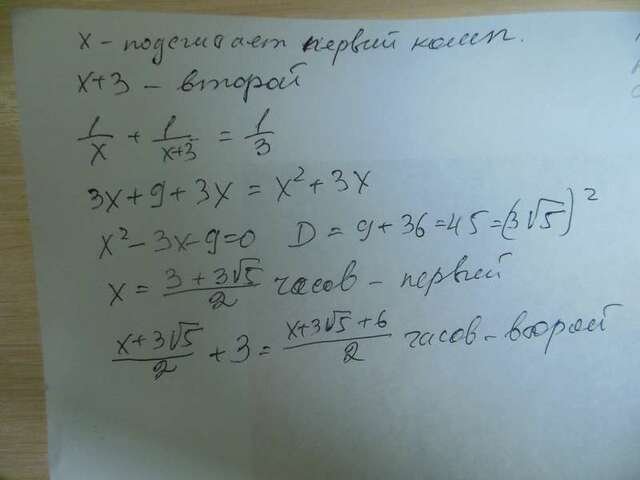 x – подсчитает первый комп.
x+3 – второй
1/x + 1/(x+3) = 1/3
3x+9+3x = x²+3x
x²-3x-9=0 D = 9+36=45=(3√5)²
x = (3+3√5)/2 часов – первый
(x+3√5)/2 + 3 = (x+3√5+6)/2 часов – второй